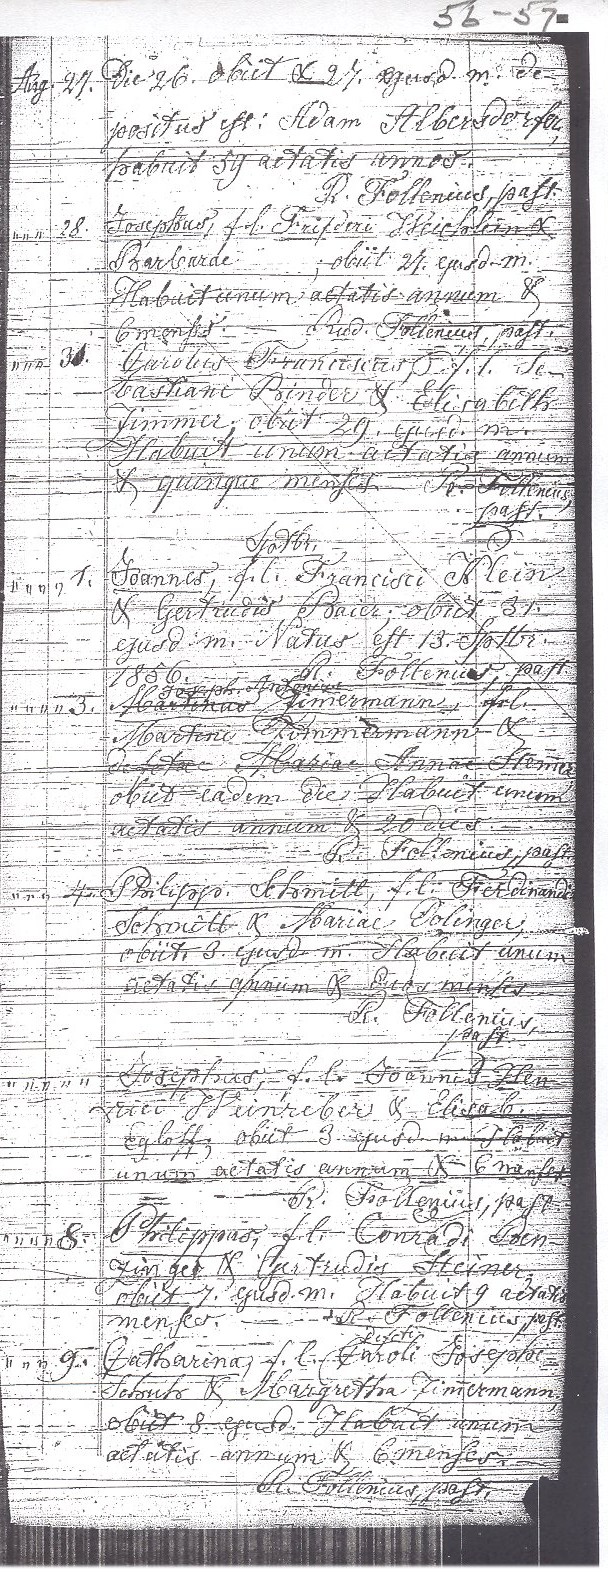 56-57
Aug. 27. Die 26. obiit & 27. ejusd. m. de
positus est: Adam Albersdorfer,
habuit 59 aetatis annos.
R. Follenius, past.
" " " 28. Josephus, f. l. Frideri Weichlein &
Barbarae ; obiit 27. ejusd. m.
Habuit unum aetatis annum &
6 menses. Rud. Follenius, past.
" " " 31. Carolus Franciscus, f. l. Se-
bastiani Binder & Elisabeth
Zimmer, obiit 29. ejusd. m.
Habuit unum aetatis annum
& quinque menses. R. Follenius,
past.
Sptbr.
" " " " 1. Joannes, f. l. Francisci Klein
& Gertrudis Baier, obiit 31.
ejusd. m. Natus est 13. Sptbr.
1856. R. Follenius, past.
Joseph. Antonius
" " " " 3. Martinus Zimermann, f. l.
Martini Zimmermann &
Mariae Annae
obiit eadem die. Habuit unum
aetatis annum & 20 dies.
R. Follenius, past.
" " " 4. Philipp. Schmitt, f. l. Ferdinandi
Schmitt & Mariae Dolinger,
obiit 3. ejusd. m. Habuit unum
aetatis annum & duos menses
R. Follenius,
past.
" " " " " Josephus, f. l. Joannis Hen-
rici Weinreber & Elisab.
Egloff, obiit 3 ejusd. m. Habuit
unum aetatis annum & 6 menses
R. Follenius, past.
" " " " 8. Philippus, f. l. Conradi Ben-
zinger & Gertrudis Steiner,
obiit 7. ejusd. m. Habuit 9 aetatis
menses. R. Follenius, past.
" " " 9. Catharina, f. l. Caroli Josephi
Schuh & Margretha Zimermann,
obiit 8 ejusd. Habuit unum
aetatis annum & 6 menses.
R. Follenius, past.